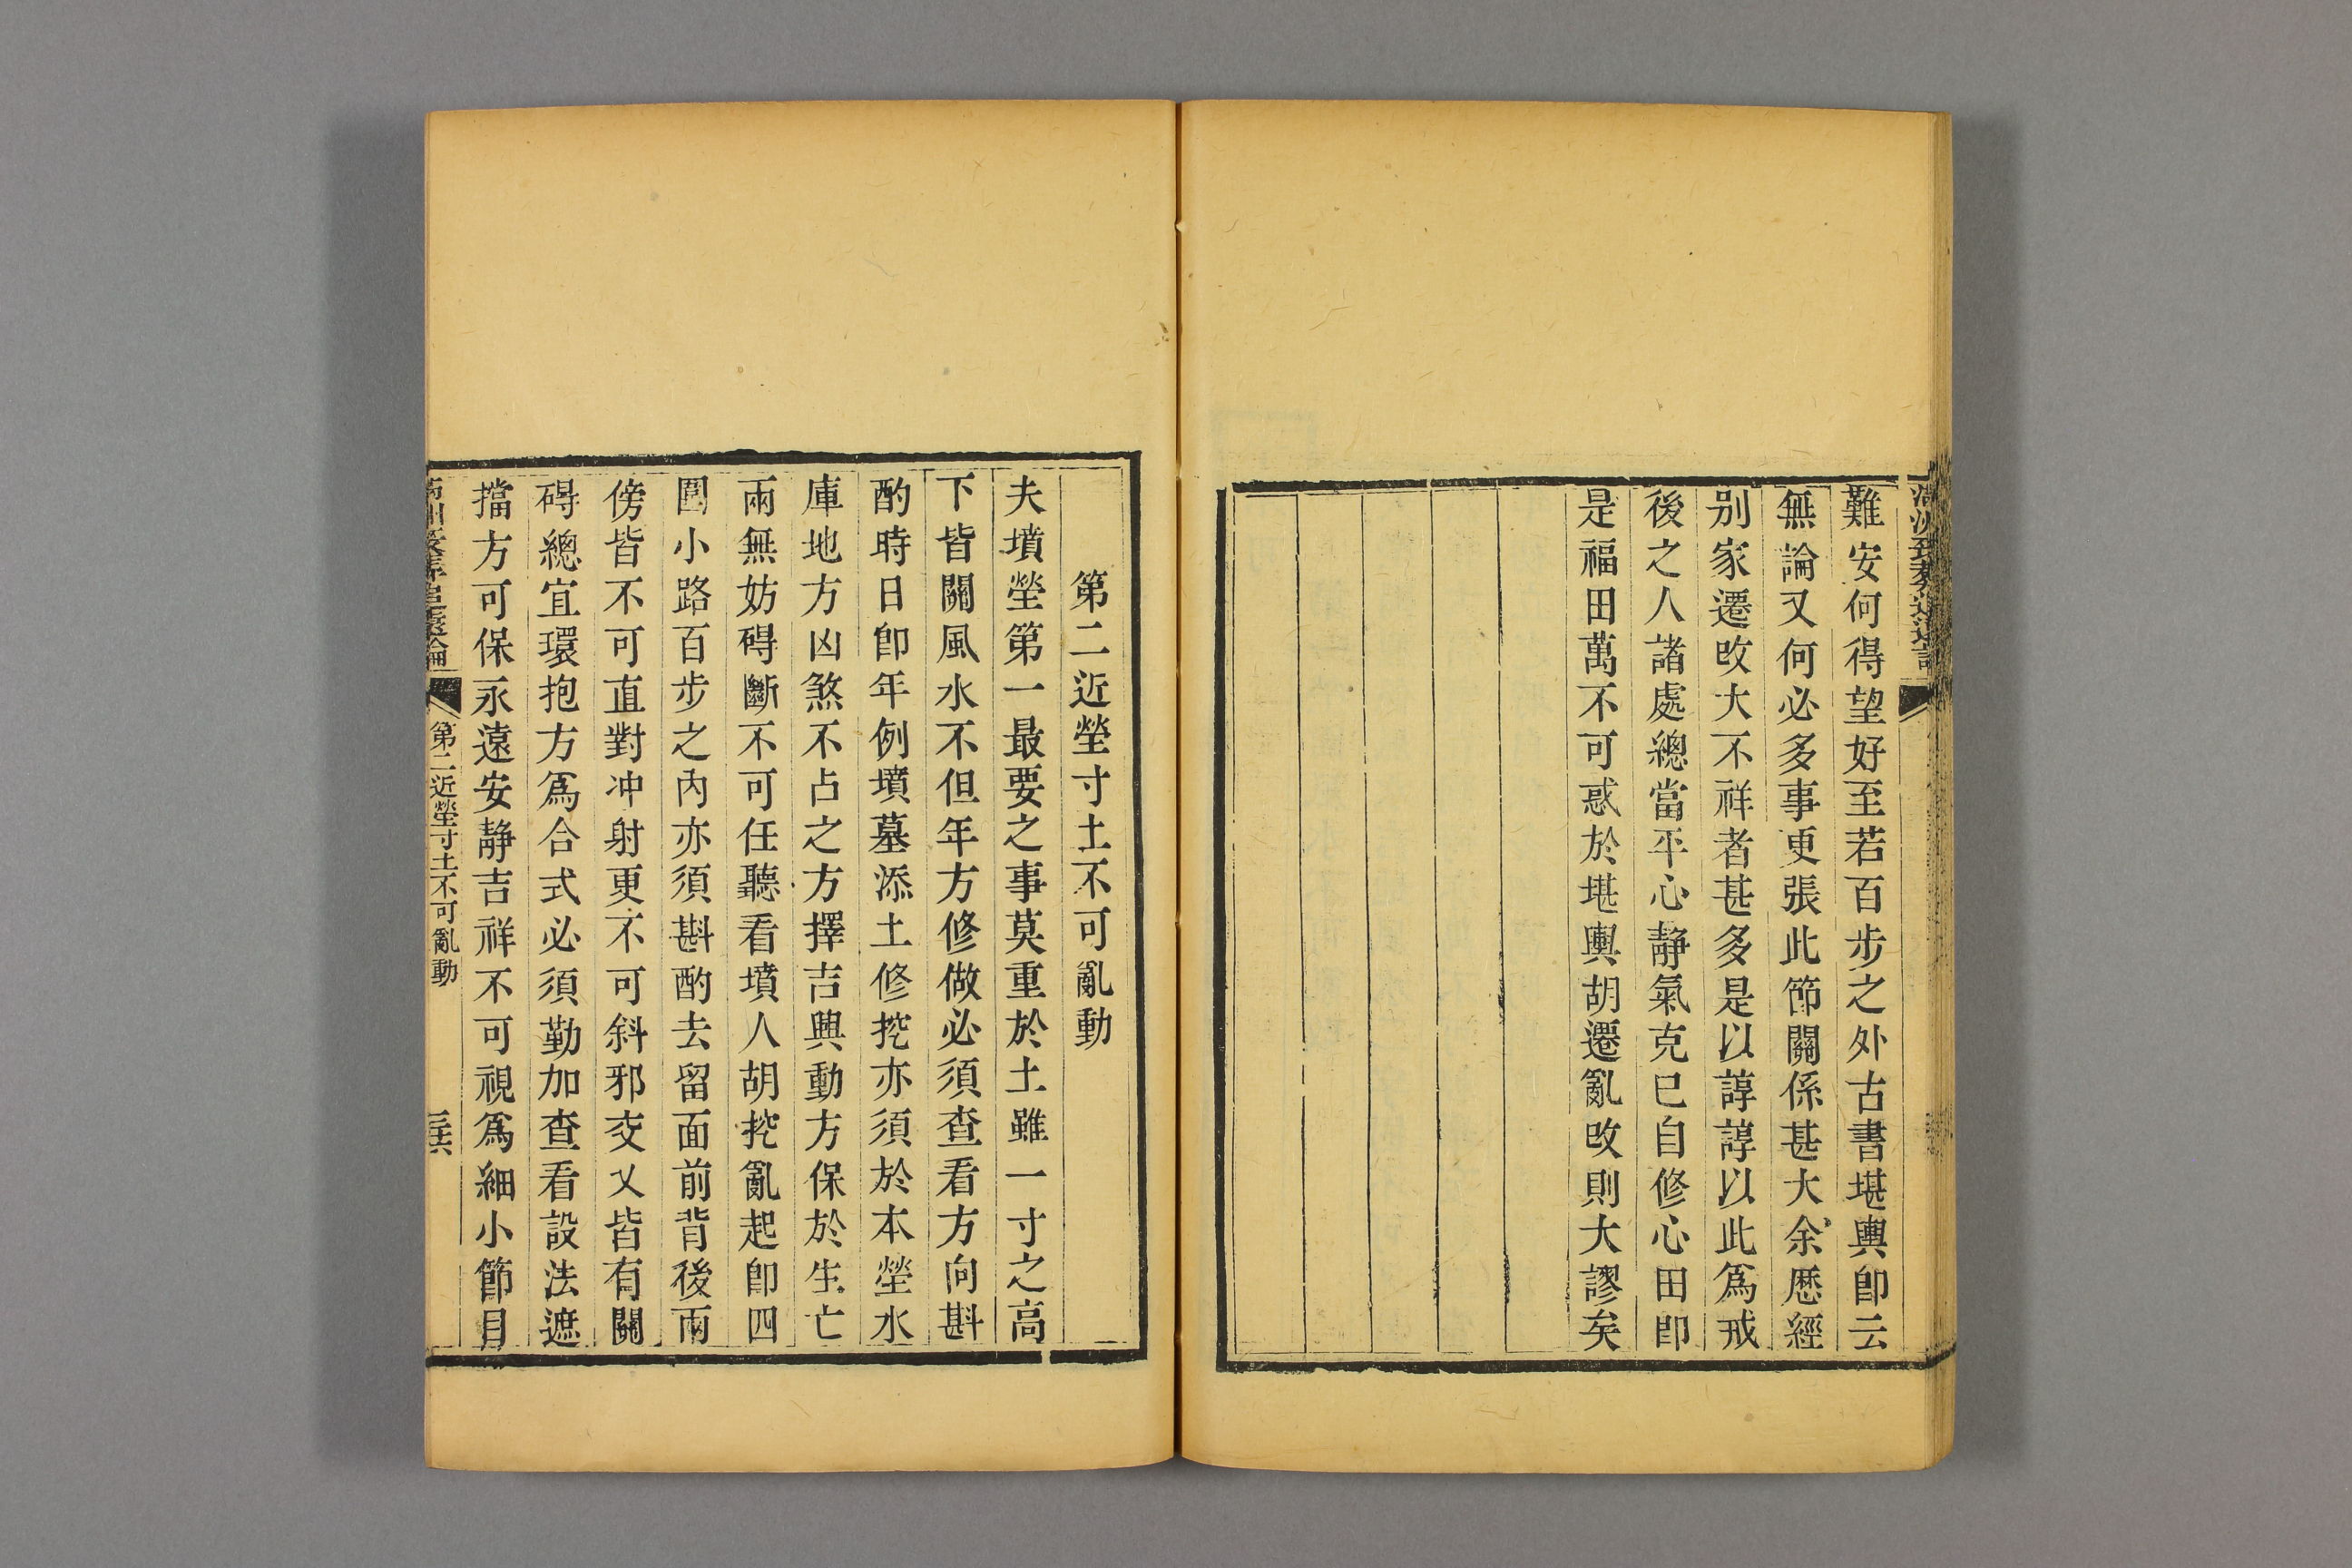 難安何得望好至若百步之外古書堪輿卽云
無論又何必多事更張此節關係甚大余歷經
别家遷改大不祥者甚多是以諄諄以此爲戒
後之人諸處總當平心靜氣克已自修心田卽
是福田萬不可惑於堪輿胡遷亂改則大謬矣
第二近塋寸土不可亂動
夫墳塋第一最要之事莫重於土雖一寸之高
下皆關風水不但年方修做必須查看方向斟
酌時日卽年例墳墓添土修挖亦須於本塋水
庫地方凶煞不占之方擇吉興動方保於生亡
兩無妨碍斷不可任聽看墳人胡挖亂起卽四
圍小路百步之內亦須斟酌去留面前背後兩
傍皆不可直對冲射更不可斜邪交乂皆有關
碍總宜環抱方爲合式必須勤加查看設法遮
擋方可保永遠安靜吉祥不可視爲細小節目
第二近塋寸土不可亂動